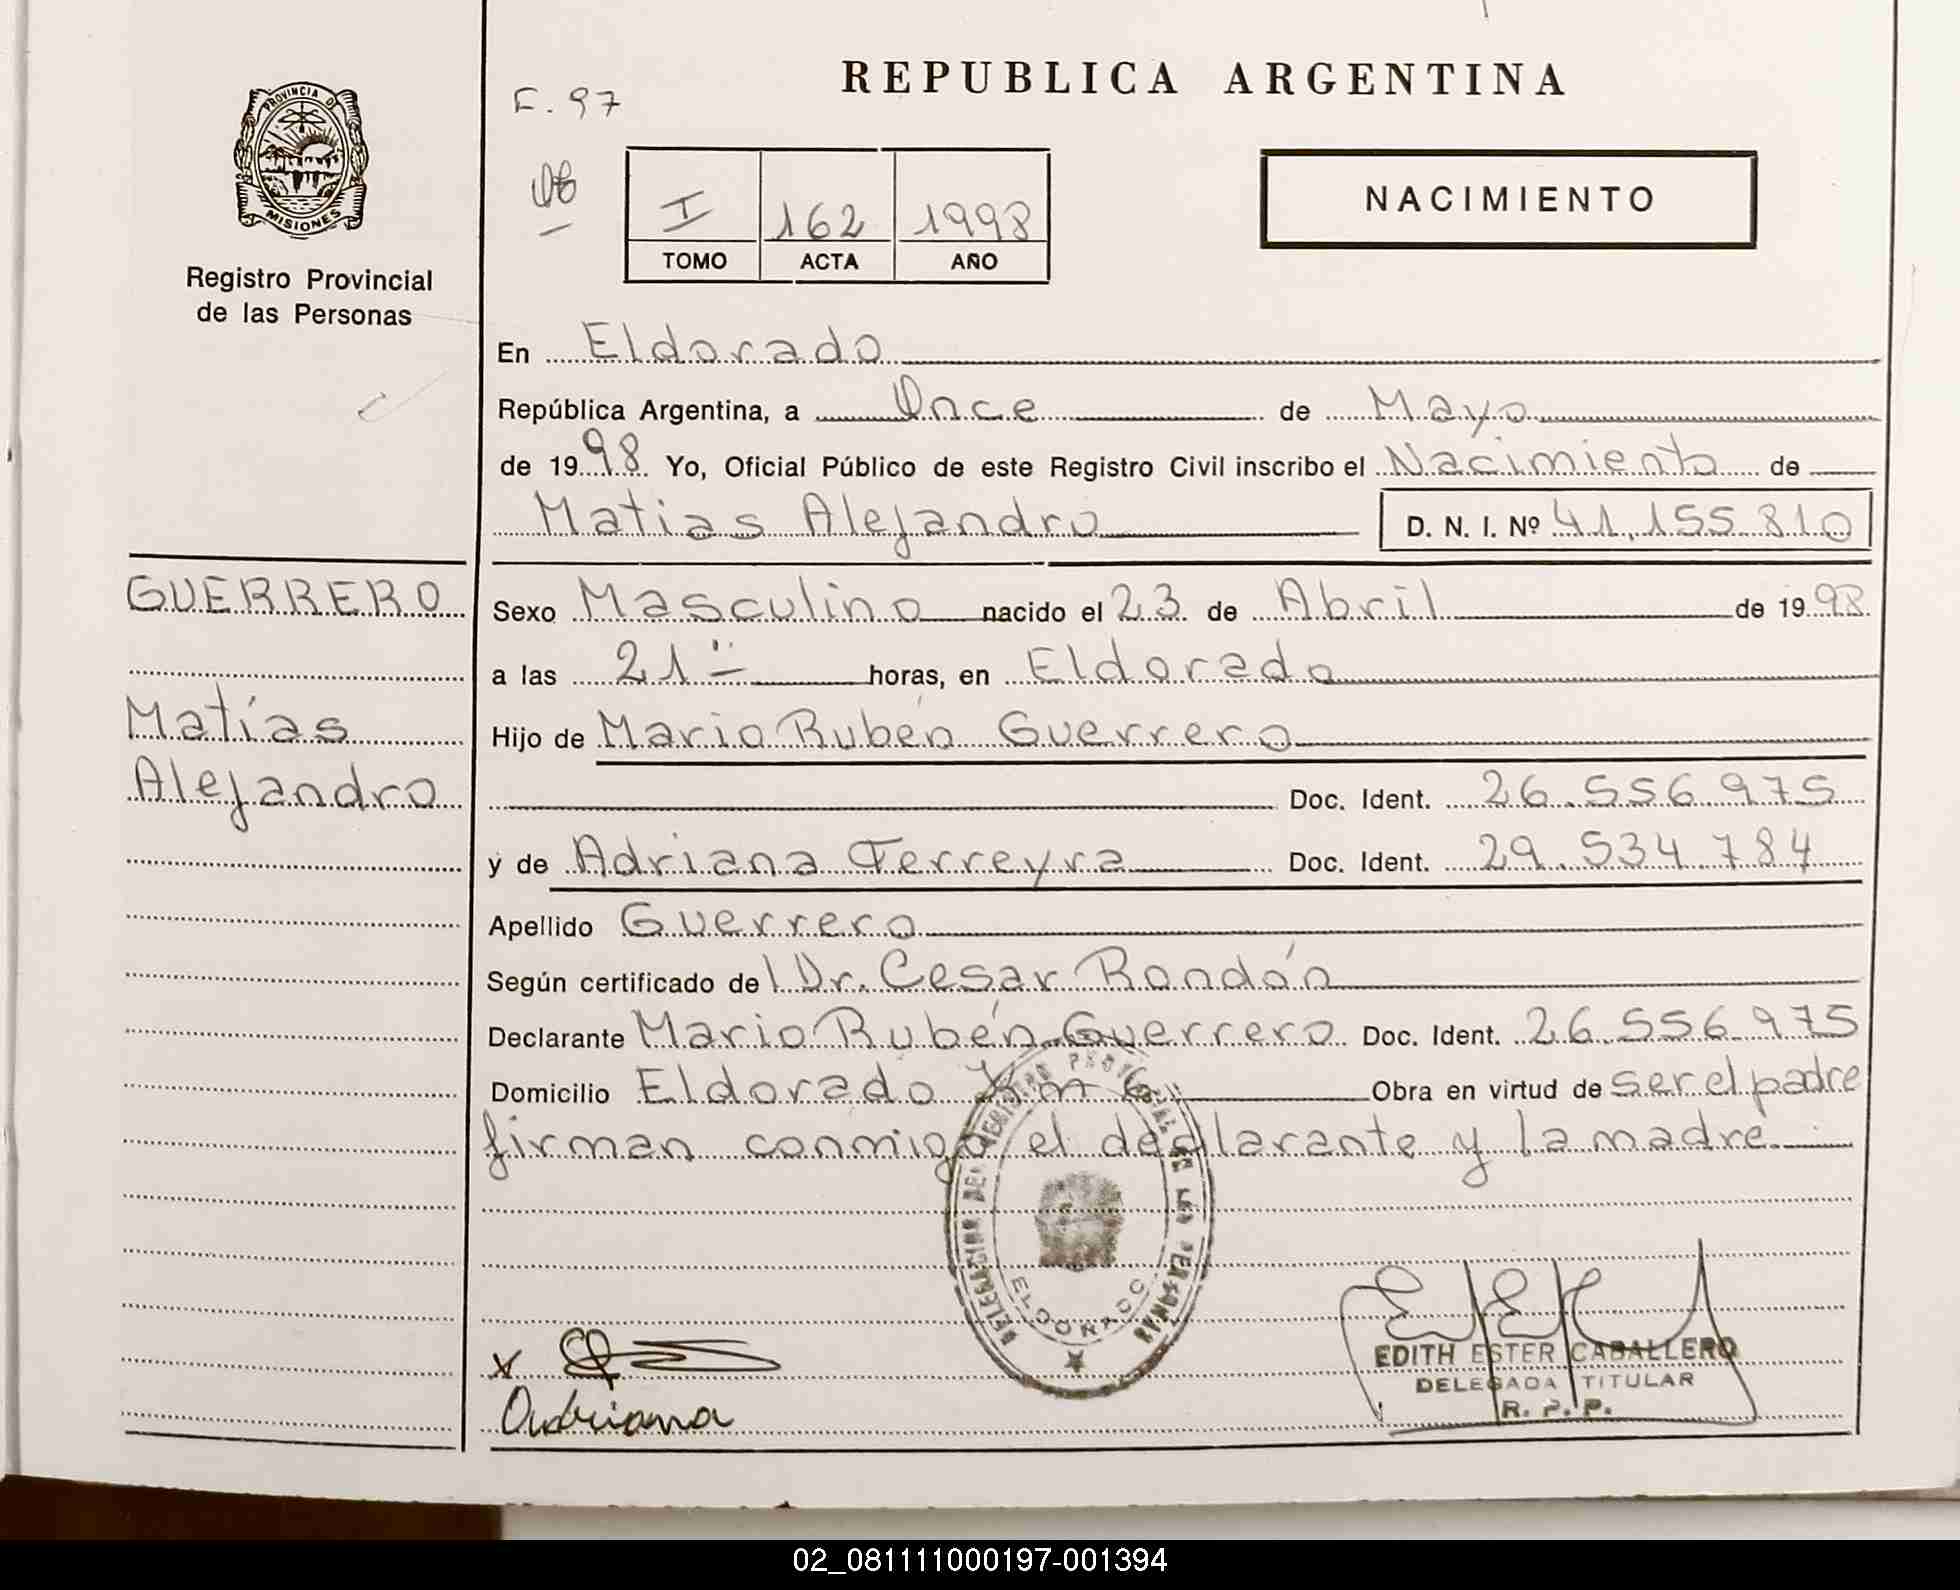 PROVINCIA D
MISIONES
Registro Provincial
de las Personas
REPUBLICA ARGENTINA
F. 97
I 162 1998
TOMO ACTA AÑO
NACIMIENTO
En Eldorado
República Argentina, a Once de Mayo
de 1998 Yo, Oficial Público de este Registro Civil inscribo el Nacimiento de
Matias Alejandro D. N. I. Nº 41.155.810
GUERRERO
Matías
Alejandro
Sexo Masculino nacido el 23 de Abril de 1998
a las 21 horas, en Eldorado
Hijo de Mario Rubén Guerrero
Doc. Ident. 26.556.975
y de Adriana Ferreyra Doc. Ident. 29.534.784
Apellido Guerrero
Según certificado del Dr. Cesar Rondón
Declarante Mario Rubén Guerrero Doc. Ident. 26.556.975
Domicilio Eldorado Km 6 Obra en virtud de ser el padre
firman conmigo el declarante y la madre.
DELEGACION DEL REGISTRO PROVINCIAL DE LAS PERSONAS
ELDORADO
x
Adriana
EDITH ESTER CABALLERO
DELEGADA TITULAR
R. P. P.
02_081111000197-001394